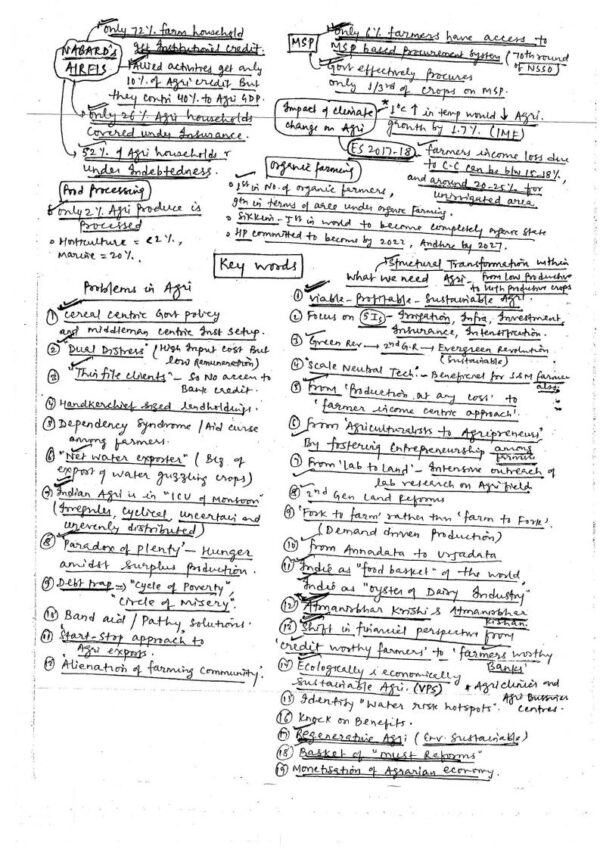 NABARD's
AIRFIS
Only 72% farm household
get Institutional credit.
Allied activities get only
10% of Agri credit But
they contri 40% to Agri GDP.
Only 26% Agri households
covered under Insurance.
52% of Agri households r
under Indebtedness.
Food Processing
Only 2% Agri Produce is
Processed
Horticulture = <2%,
Marine = 20%.
MSP
Only 6% farmers have access to
MSP based procurement system (70th round
of NSSO)
Govt effectively procures
only 1/3rd of crops on MSP.
Impact of climate
change on Agri
* 1°C ↑ in temp would ↓ Agri
growth by 1.7% (IMF)
ES 2017-18 - farmers income loss due
to C.C can be b/w 15-18%,
and around 20-25% for
unirrigated area
Organic farming
1st in No. of organic farmers,
9th in terms of area under organic farming.
Sikkim - Ist in world to become completely organic state
HP committed to become by 2022, Andhra by 2027.
Key words
Problems in Agri
① Cereal centric Govt policy
and middleman centric Inst setup.
② "Dual Distress" (High Input cost But
Low Remuneration)
③ "Thin file clients" - So No access to
Bank credit.
④ Handkerchief sized landholdings.
⑤ Dependency Syndrome / Aid curse
among farmers.
⑥ "Net water exporter" (Bcz of
export of water guzzling crops)
⑦ Indian Agri is in "ICU of Monsoon"
(Irregular, Cyclical, uncertain and
unevenly distributed)
⑧ 'Paradox of plenty' - Hunger
amidst surplus production.
⑨ Debt trap → "Cycle of Poverty"
"Circle of misery".
⑩ Band aid / Pathy solutions.
⑪ 'Start-Stop approach' to
Agri exports.
⑫ 'Alienation of farming community'.
Structural Transformation within
What we need Agri - from low productive
to high productive crops
① Viable - Profitable - Sustainable Agri.
② Focus on 5 Is - Irrigation, Infra, Investment,
Insurance, Intensification.
③ Green Rev → 2nd G.R → Evergreen Revolution
(Sustainable)
④ "Scale Neutral Tech" - Beneficial for S&M farmer
also
⑤ From 'Production at any loss' to
'farmer income centric approach'.
⑥ From 'Agriculturalists to Agripreneurs'
By fostering Entrepreneurship among
farmers
⑦ From 'lab to land' - Intensive outreach of
lab research on Agri field
⑧ 2nd Gen Land Reforms
⑨ 'Fork to farm' rather than 'farm to Fork'.
(Demand driven Production)
⑩ from Annadata to Urjadata
⑪ India as "food basket" of the world,
India as "oyster of Dairy Industry"
⑫ Atmanirbhar Krishi & Atmanirbhar
Kishan.
⑬ Shift in financial perspective from
'credit worthy farmers' to 'farmers worthy
Banks'
⑭ Ecologically & economically
Sustainable Agri. (VPS) * Agriclinics and
Agri Business
centres.
⑮ Identify "Water risk hotspots".
⑯ Knock on Benefits.
⑰ Regenerative Agri (Env. Sustainable)
⑱ Basket of "must Reforms"
⑲ Monetisation of Agrarian economy.